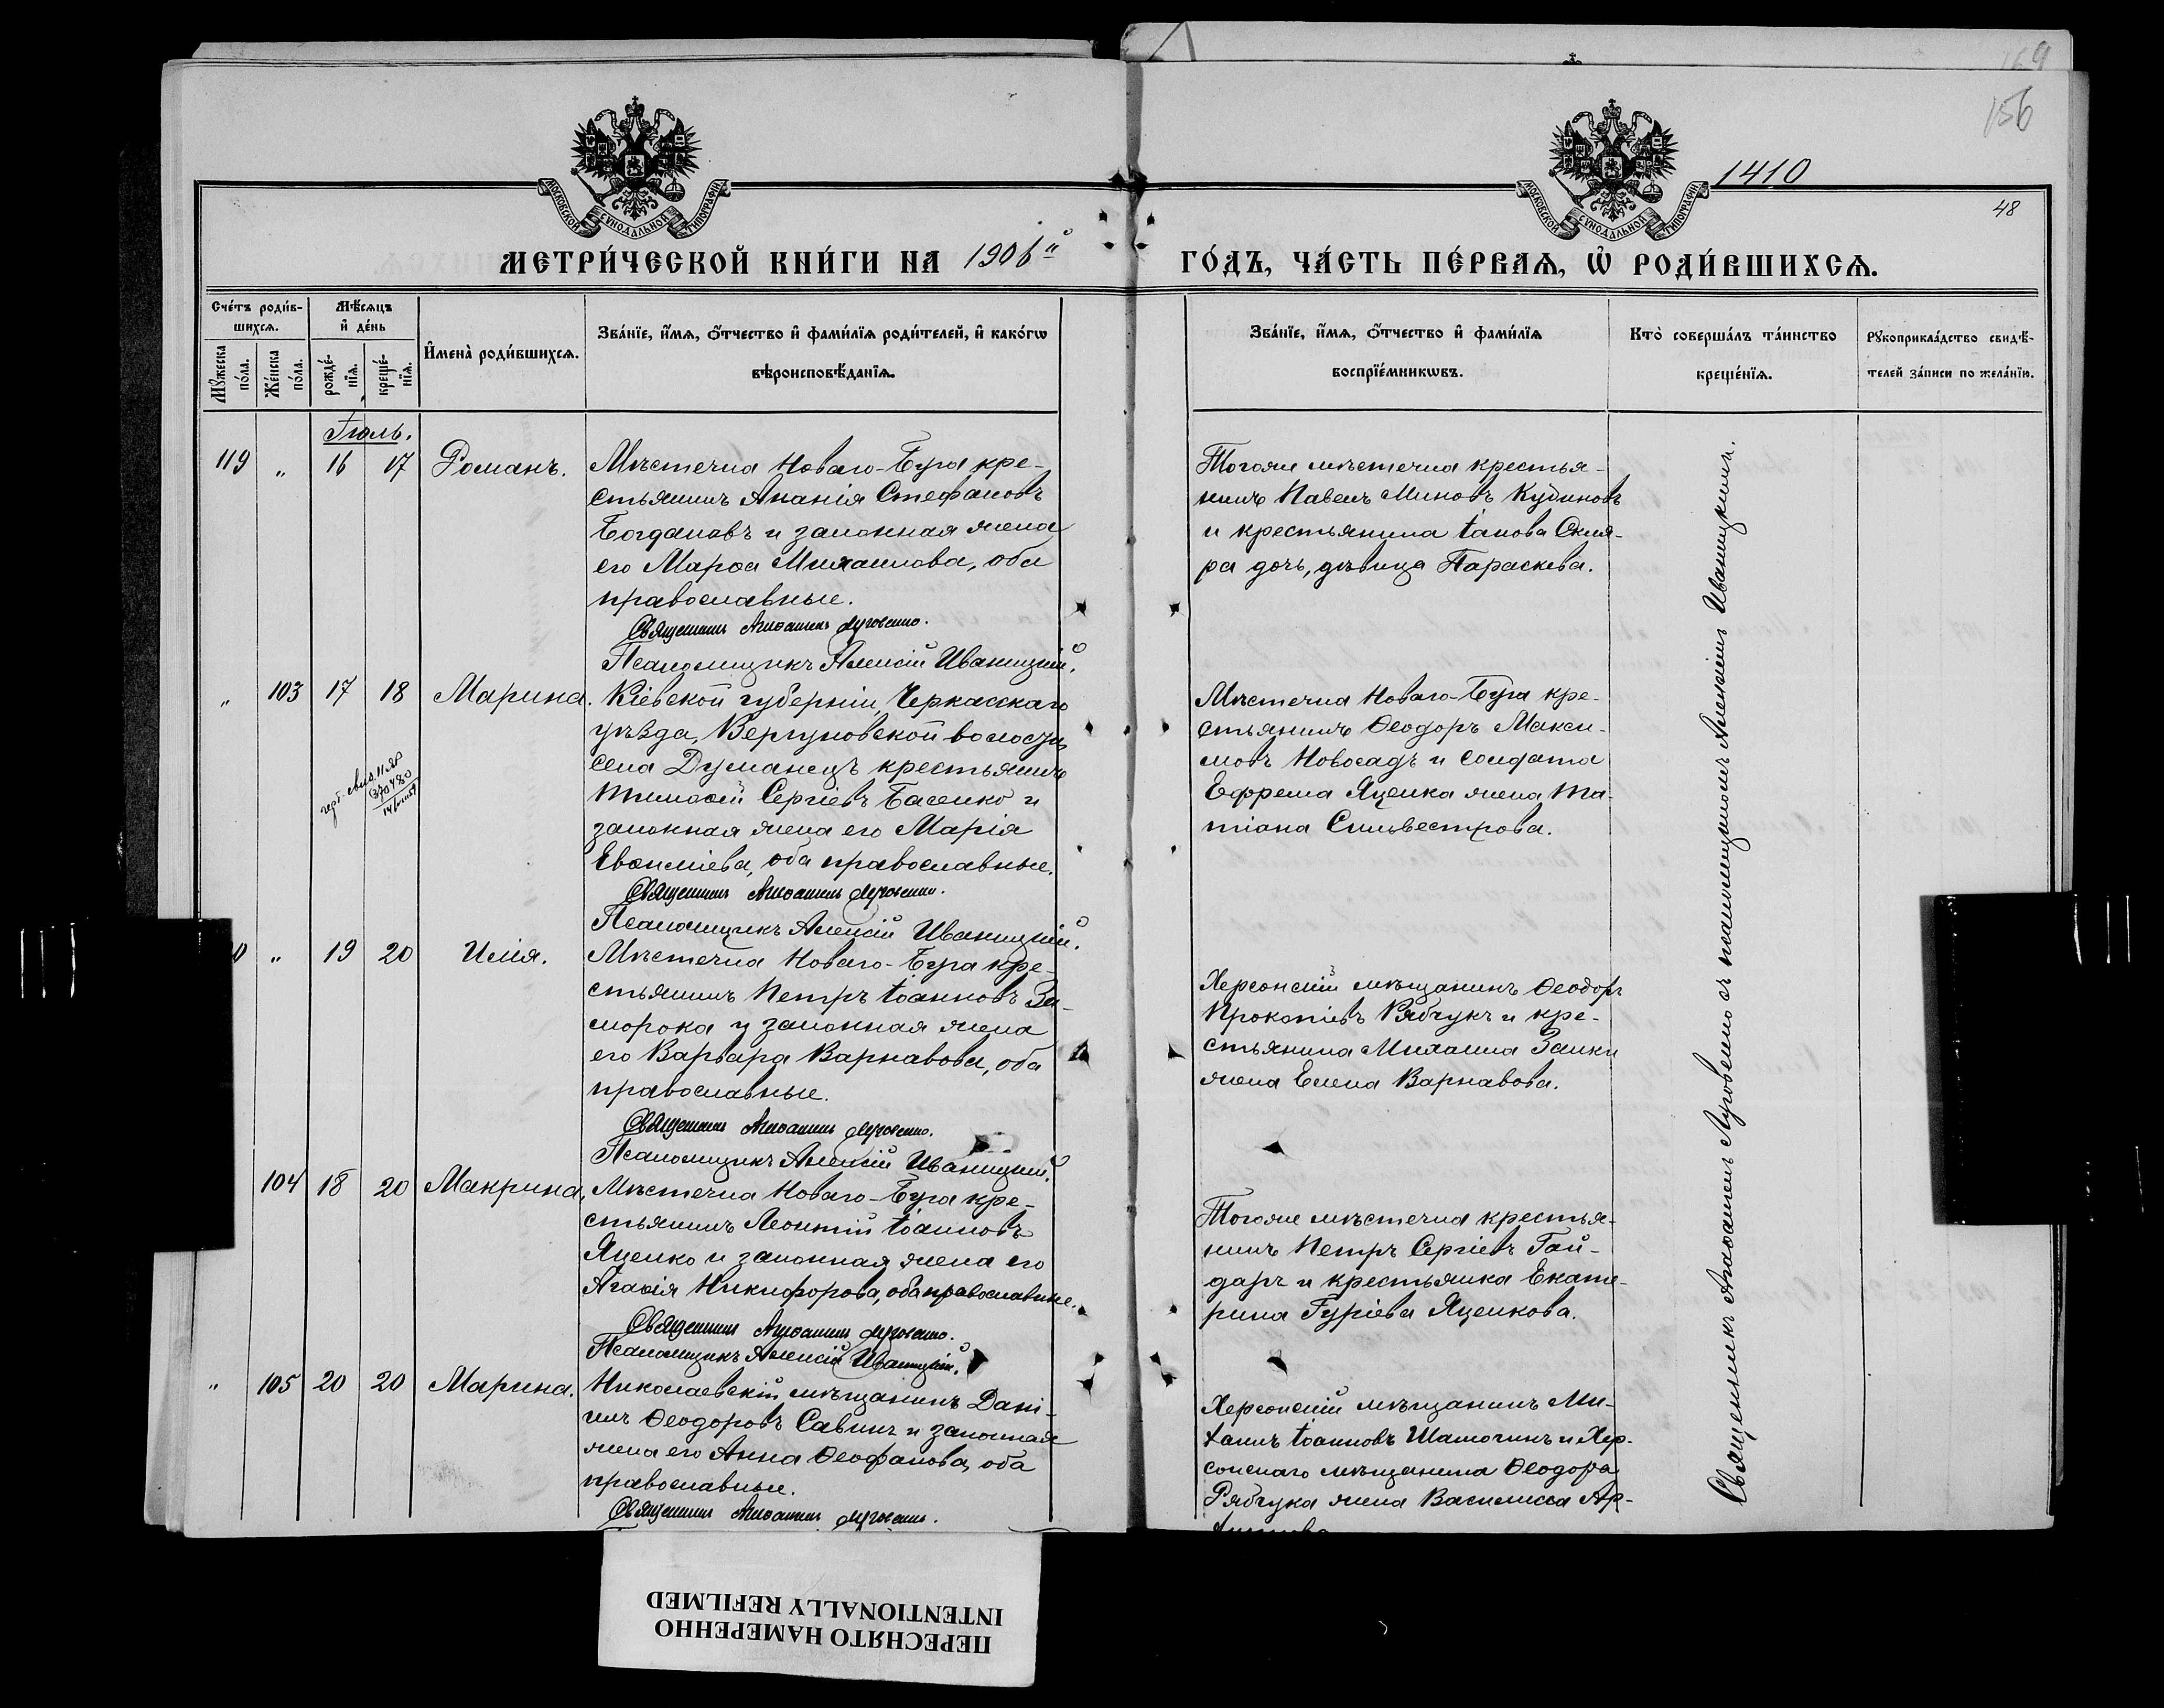 169
156
1410
48
МОСКОВСКОЙ СѴНОДАЛЬНОЙ ТИПОГРАФІИ
МОСКОВСКОЙ СѴНОДАЛЬНОЙ ТИПОГРАФІИ
МЕТРИ́ЧЕСКОЙ КНИ́ГИ НА 1906й
ГО́ДЪ, ЧА́СТЬ ПЕ́РВАѦ, Ѡ РОДИ́ВШИХСѦ.
Сче́тъ роди́в-
шихсѧ.
Мꙋ́жеска по́ла.
Же́нска по́ла.
Мѣ́сѧцъ
и де́нь
рожде́-
нїѧ.
креще́-
нїѧ.
И҆мена̀ роди́вшихсѧ.
Зва́нїе, и҆́мѧ, ѻ҆́тчество и҆ фами́лїѧ роди́телей, и҆ како́гѡ
вѣроисповѣ́данїѧ.
Зва́нїе, и҆́мѧ, ѻ҆́тчество и҆ фами́лїѧ
воспрїе́мникѡвъ.
Кто̀ соверша́лъ та́инство
креще́нїѧ.
Рꙋкоприкла́дство свидѣ́-
телей за́писи по жела́нїю.
Іюль.
119 „ 16 17 Романъ.
Мѣстечка Новаго-Буга кре-
стьянинъ Ананія Стефановъ
Богдановъ и законная жена
его Марѳа Михаилова, оба
православные.
Священникъ Агаѳангелъ Луговенко.
Псаломщикъ Алексій Иваницкій.
Тогоже мѣстечка крестья-
нинъ Павелъ Миновъ Кудиновъ
и крестьянина Іакова Скля-
ра дочь, дѣвица Параскева.
„ 103 17 18 Марина.
370480
Кіевской губерніи, Черкасскаго
уѣзда, Вергуновской волости,
села Думанецъ крестьянинъ
Тимоѳей Сергіевъ Басенко и
законная жена его Марія
Евѳиміева, оба православные.
Священникъ Агаѳангелъ Луговенко.
Псаломщикъ Алексій Иваницкій.
Мѣстечка Новаго-Буга кре-
стьянинъ Ѳеодоръ Макси-
мовъ Новосадъ и солдата
Ефрема Яценка жена Та-
тіана Сильвестрова.
0 „ 19 20 Илія.
Мѣстечка Новаго-Буга кре-
стьянинъ Петръ Іоанновъ За-
морока и законная жена
его Варвара Варнавова, оба
православные.
Священникъ Агаѳангелъ Луговенко.
Псаломщикъ Алексій Иваницкій.
Херсонскій мѣщанинъ Ѳеодоръ
Прокопіевъ Рябчукъ и кре-
стьянина Михаила Заики
жена Елена Варнавова.
104 18 20 Макрина.
Мѣстечка Новаго-Буга кре-
стьянинъ Леонтій Іоанновъ
Яценко и законная жена его
Агаѳія Никифорова, оба православные.
Священникъ Агаѳангелъ Луговенко.
Псаломщикъ Алексій Иваницкій.
Тогоже мѣстечка крестья-
нинъ Петръ Сергіевъ Гай-
даръ и крестьянка Екате-
рина Гуріева Яценкова.
„ 105 20 20 Марина.
Николаевскій мѣщанинъ Дані-
илъ Ѳеодоровъ Савинъ и законная
жена его Анна Ѳеофанова, оба
православные.
Священникъ Агаѳангелъ Луговенко.
Херсонскій мѣщанинъ Ми-
хаилъ Іоанновъ Шамочинъ и Хер-
сонскаго мѣщанина Ѳеодора
Рябчука жена Василисса Ар-
Священникъ Агаѳангелъ Луговенко съ псаломщикомъ Алексіемъ Иваницкимъ.
ПЕРЕСНЯТО НАМЕРЕННО
INTENTIONALLY REFILMED